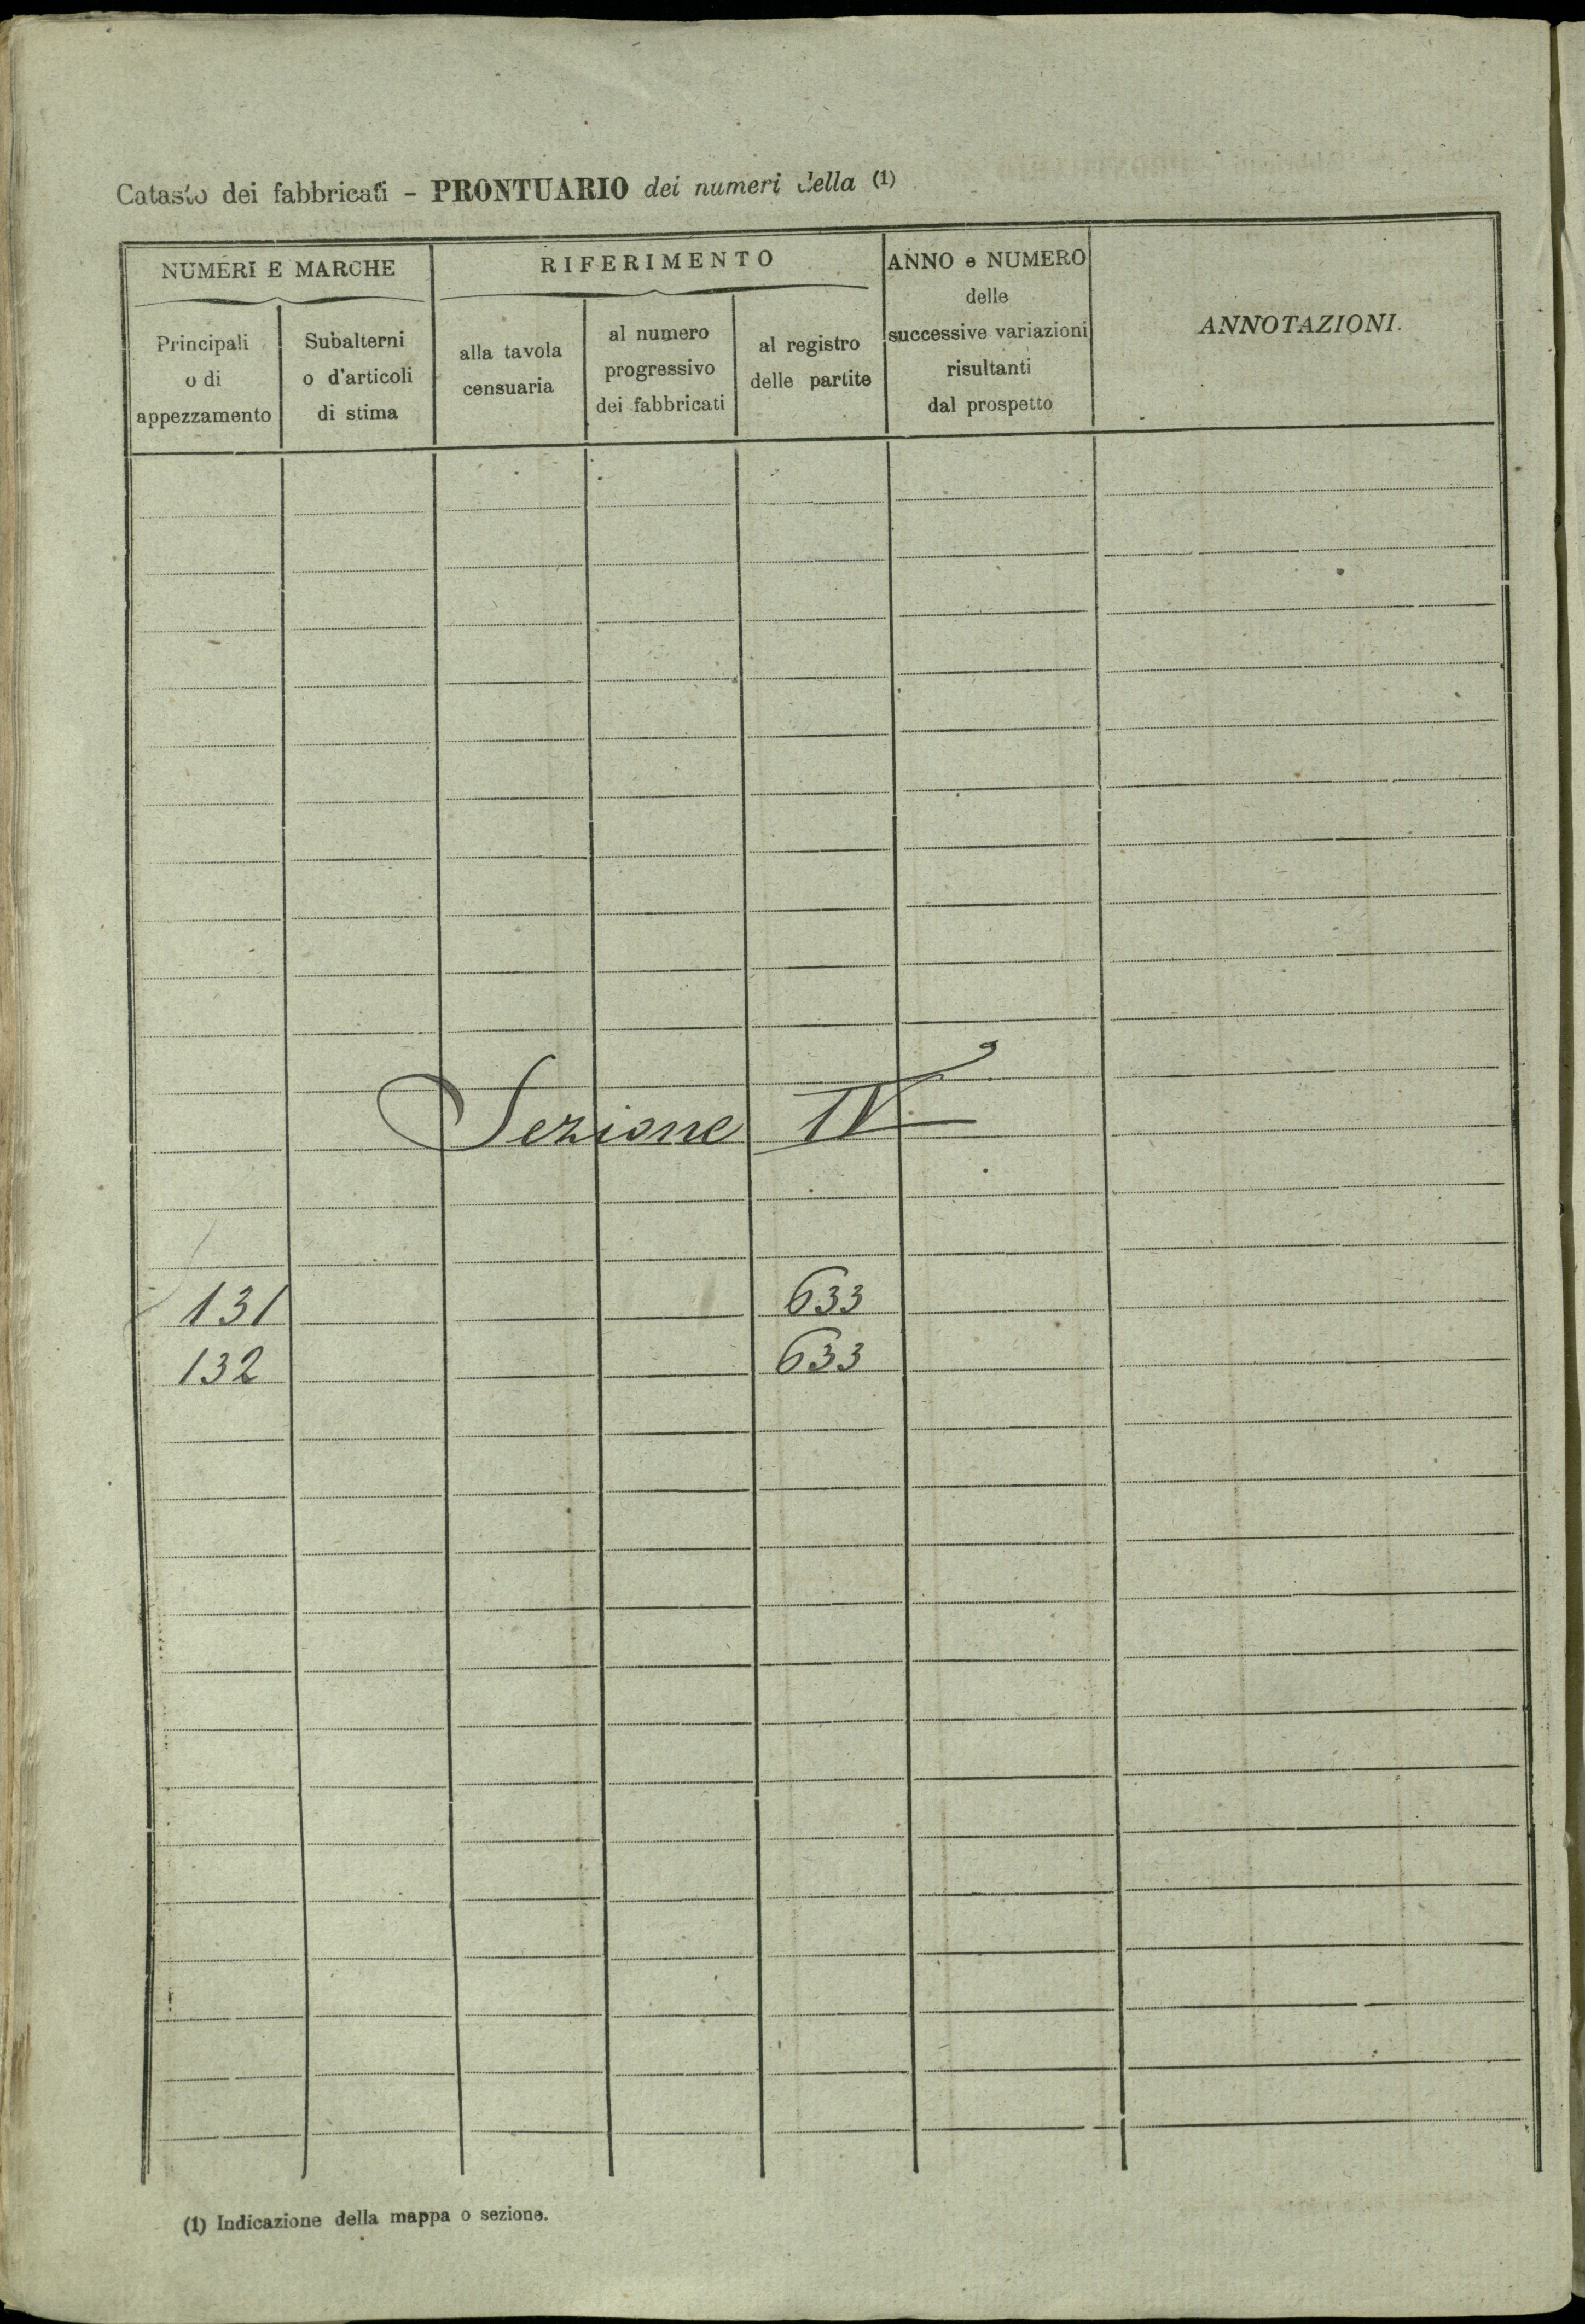 Catasto dei fabbricati - PRONTUARIO dei numeri della (1)
NUMERI E MARCHE
RIFERIMENTO
ANNO e NUMERO
delle
successive variazioni
risultanti
dal prospetto
ANNOTAZIONI.
Principali
o di
appezzamento
Subalterni
o d'articoli
di stima
alla tavola
censuaria
al numero
progressivo
dei fabbricati
al registro
delle partite
Sezione IV
131 633
132 633
(1) Indicazione della mappa o sezione.